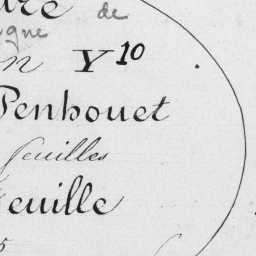 ure de
igne
n Y10
Penhouet
feuilles
euille